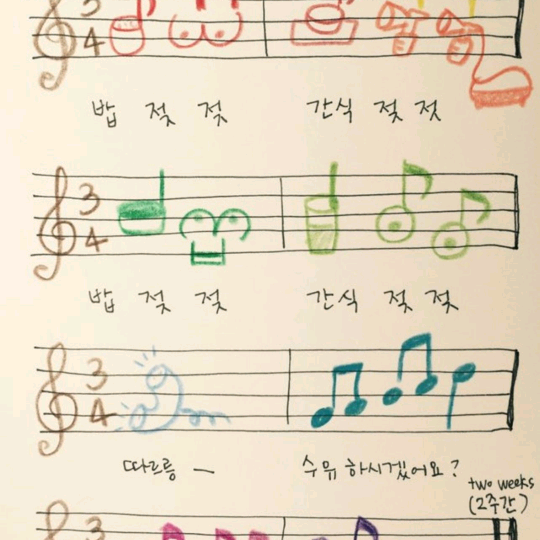 3
4
밥 젖 젖 간식 젖 젓
3
4
밥 젖 젖 간식 젖 젖
3
4
따르릉 — 수유 하시겠어요?
two weeks
(2주간)
3